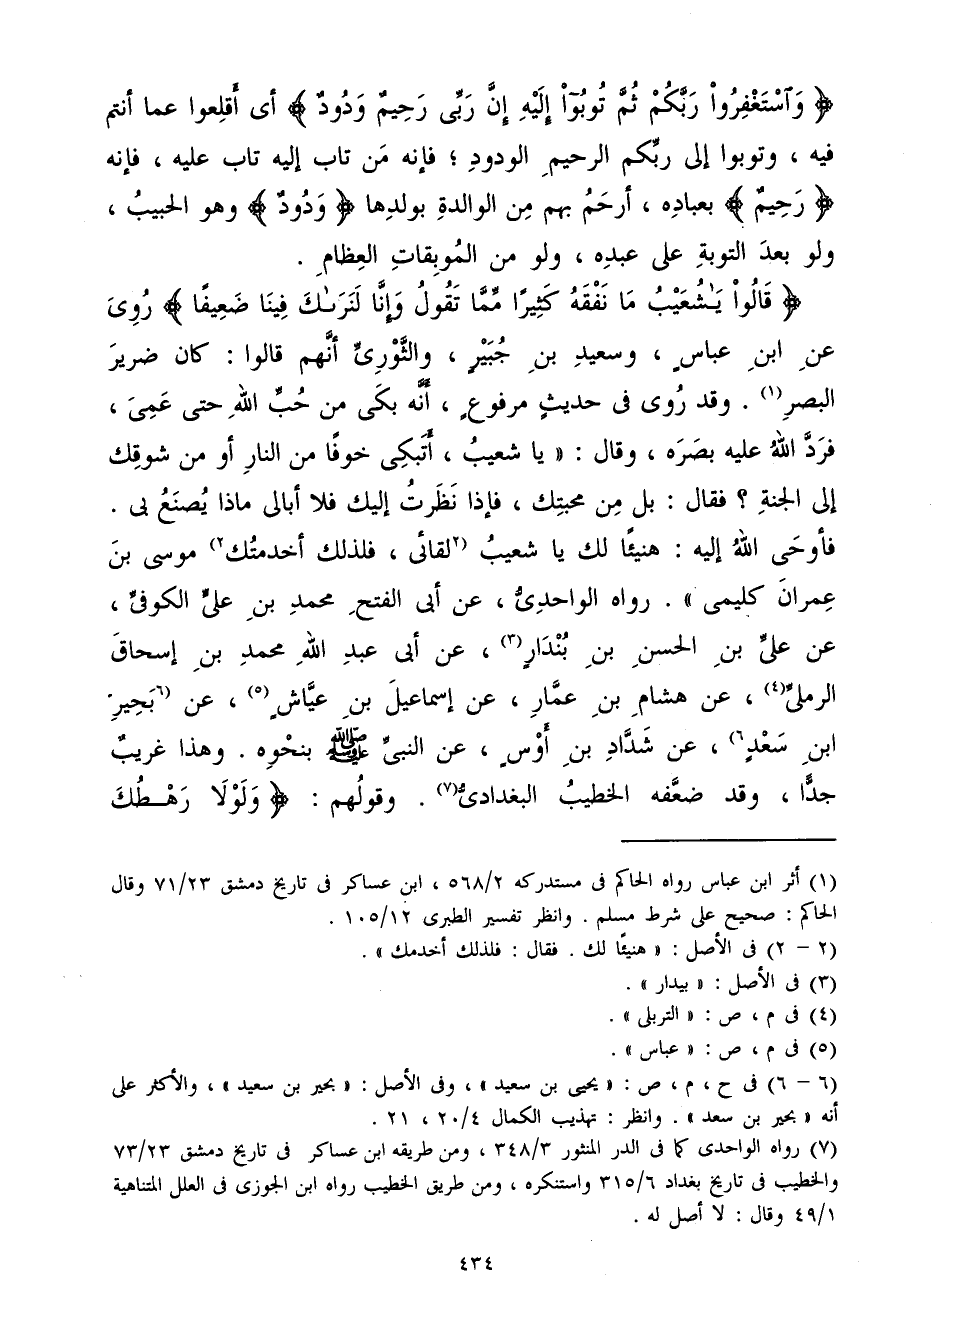 ﴿ وَٱسْتَغْفِرُوا۟ رَبَّكُمْ ثُمَّ تُوبُوٓا۟ إِلَيْهِ إِنَّ رَبِّى رَحِيمٌ وَدُودٌ ﴾ أى أَقلِعوا عما أنتم
فيه ، وتوبوا إلى ربِّكم الرحيمِ الودودِ ؛ فإنه مَن تاب إليه تاب عليه ، فإنه
﴿ رَحِيمٌ ﴾ بعبادِه ، أرحَمُ بهم مِن الوالدةِ بولدِها ﴿ وَدُودٌ ﴾ وهو الحبيبُ ،
ولو بعدَ التوبةِ على عبدِه ، ولو من المُوبِقاتِ العِظامِ .
﴿ قَالُوا۟ يَـٰشُعَيْبُ مَا نَفْقَهُ كَثِيرًا مِّمَّا تَقُولُ وَإِنَّا لَنَرَىٰكَ فِينَا ضَعِيفًا ﴾ رُوِىَ
عنِ ابنِ عباسٍ ، وسعيدِ بنِ جُبَيْرٍ ، والثَّوْرِىِّ أنَّهم قالوا : كان ضريرَ
البصرِ(١) . وقد رُوى فى حديثٍ مرفوعٍ ، أنَّه بكَى من حُبِّ اللهِ حتى عَمِىَ ،
فرَدَّ اللهُ عليه بصَرَه ، وقال : « يا شعيبُ ، أَتَبكِى خوفًا من النارِ أو من شوقِك
إلى الجنةِ ؟ فقال : بل مِن محبتِك ، فإذا نَظَرتُ إليك فلا أبالى ماذا يُصنَعُ بى .
فأوحَى اللهُ إليه : هنيئًا لك يا شعيبُ (٢لقائى ، فلذلك أخدمتُك٢) موسى بنَ
عِمرانَ كليمى » . رواه الواحدِىُّ ، عن أبى الفتحِ محمدِ بنِ علىٍّ الكوفىِّ ،
عن علىِّ بنِ الحسنِ بنِ بُنْدَارٍ(٣) ، عن أبى عبدِ اللهِ محمدِ بنِ إسحاقَ
الرملىِّ(٤) ، عن هشامِ بنِ عمَّارِ ، عن إسماعيلَ بنِ عيَّاشٍ(٥) ، عن (٦بَحِيرِ
ابنِ سَعْدٍ٦) ، عن شَدَّادِ بنِ أَوْسٍ ، عن النبىِّ ﷺ بنحْوِه . وهذا غريبٌ
جدًّا ، وقد ضعَّفه الخطيبُ البغدادىُّ(٧) . وقولُهم : ﴿ وَلَوْلَا رَهْطُكَ
(١) أثر ابن عباس رواه الحاكم فى مستدركه ٥٦٨/٢ ، ابن عساكر فى تاريخ دمشق ٧١/٢٣ وقال
الحاكم : صحيح على شرط مسلم . وانظر تفسير الطبرى ١٠٥/١٢ .
(٢ – ٢) فى الأصل : « هنيئًا لك . فقال : فلذلك أخدمك » .
(٣) فى الأصل : « بيدار » .
(٤) فى م ، ص : « التربلى » .
(٥) فى م ، ص : « عباس » .
(٦ – ٦) فى ح ، م ، ص : « يحيى بن سعيد » ، وفى الأصل : « بحير بن سعيد » ، والأكثر على
أنه « بحير بن سعد » . وانظر : تهذيب الكمال ٢٠/٤ ، ٢١ .
(٧) رواه الواحدى كما فى الدر المنثور ٣٤٨/٣ ، ومن طريقه ابن عساكر فى تاريخ دمشق ٧٣/٢٣
والخطيب فى تاريخ بغداد ٣١٥/٦ واستنكره ، ومن طريق الخطيب رواه ابن الجوزى فى العلل المتناهية
٤٩/١ وقال : لا أصل له .
٤٣٤